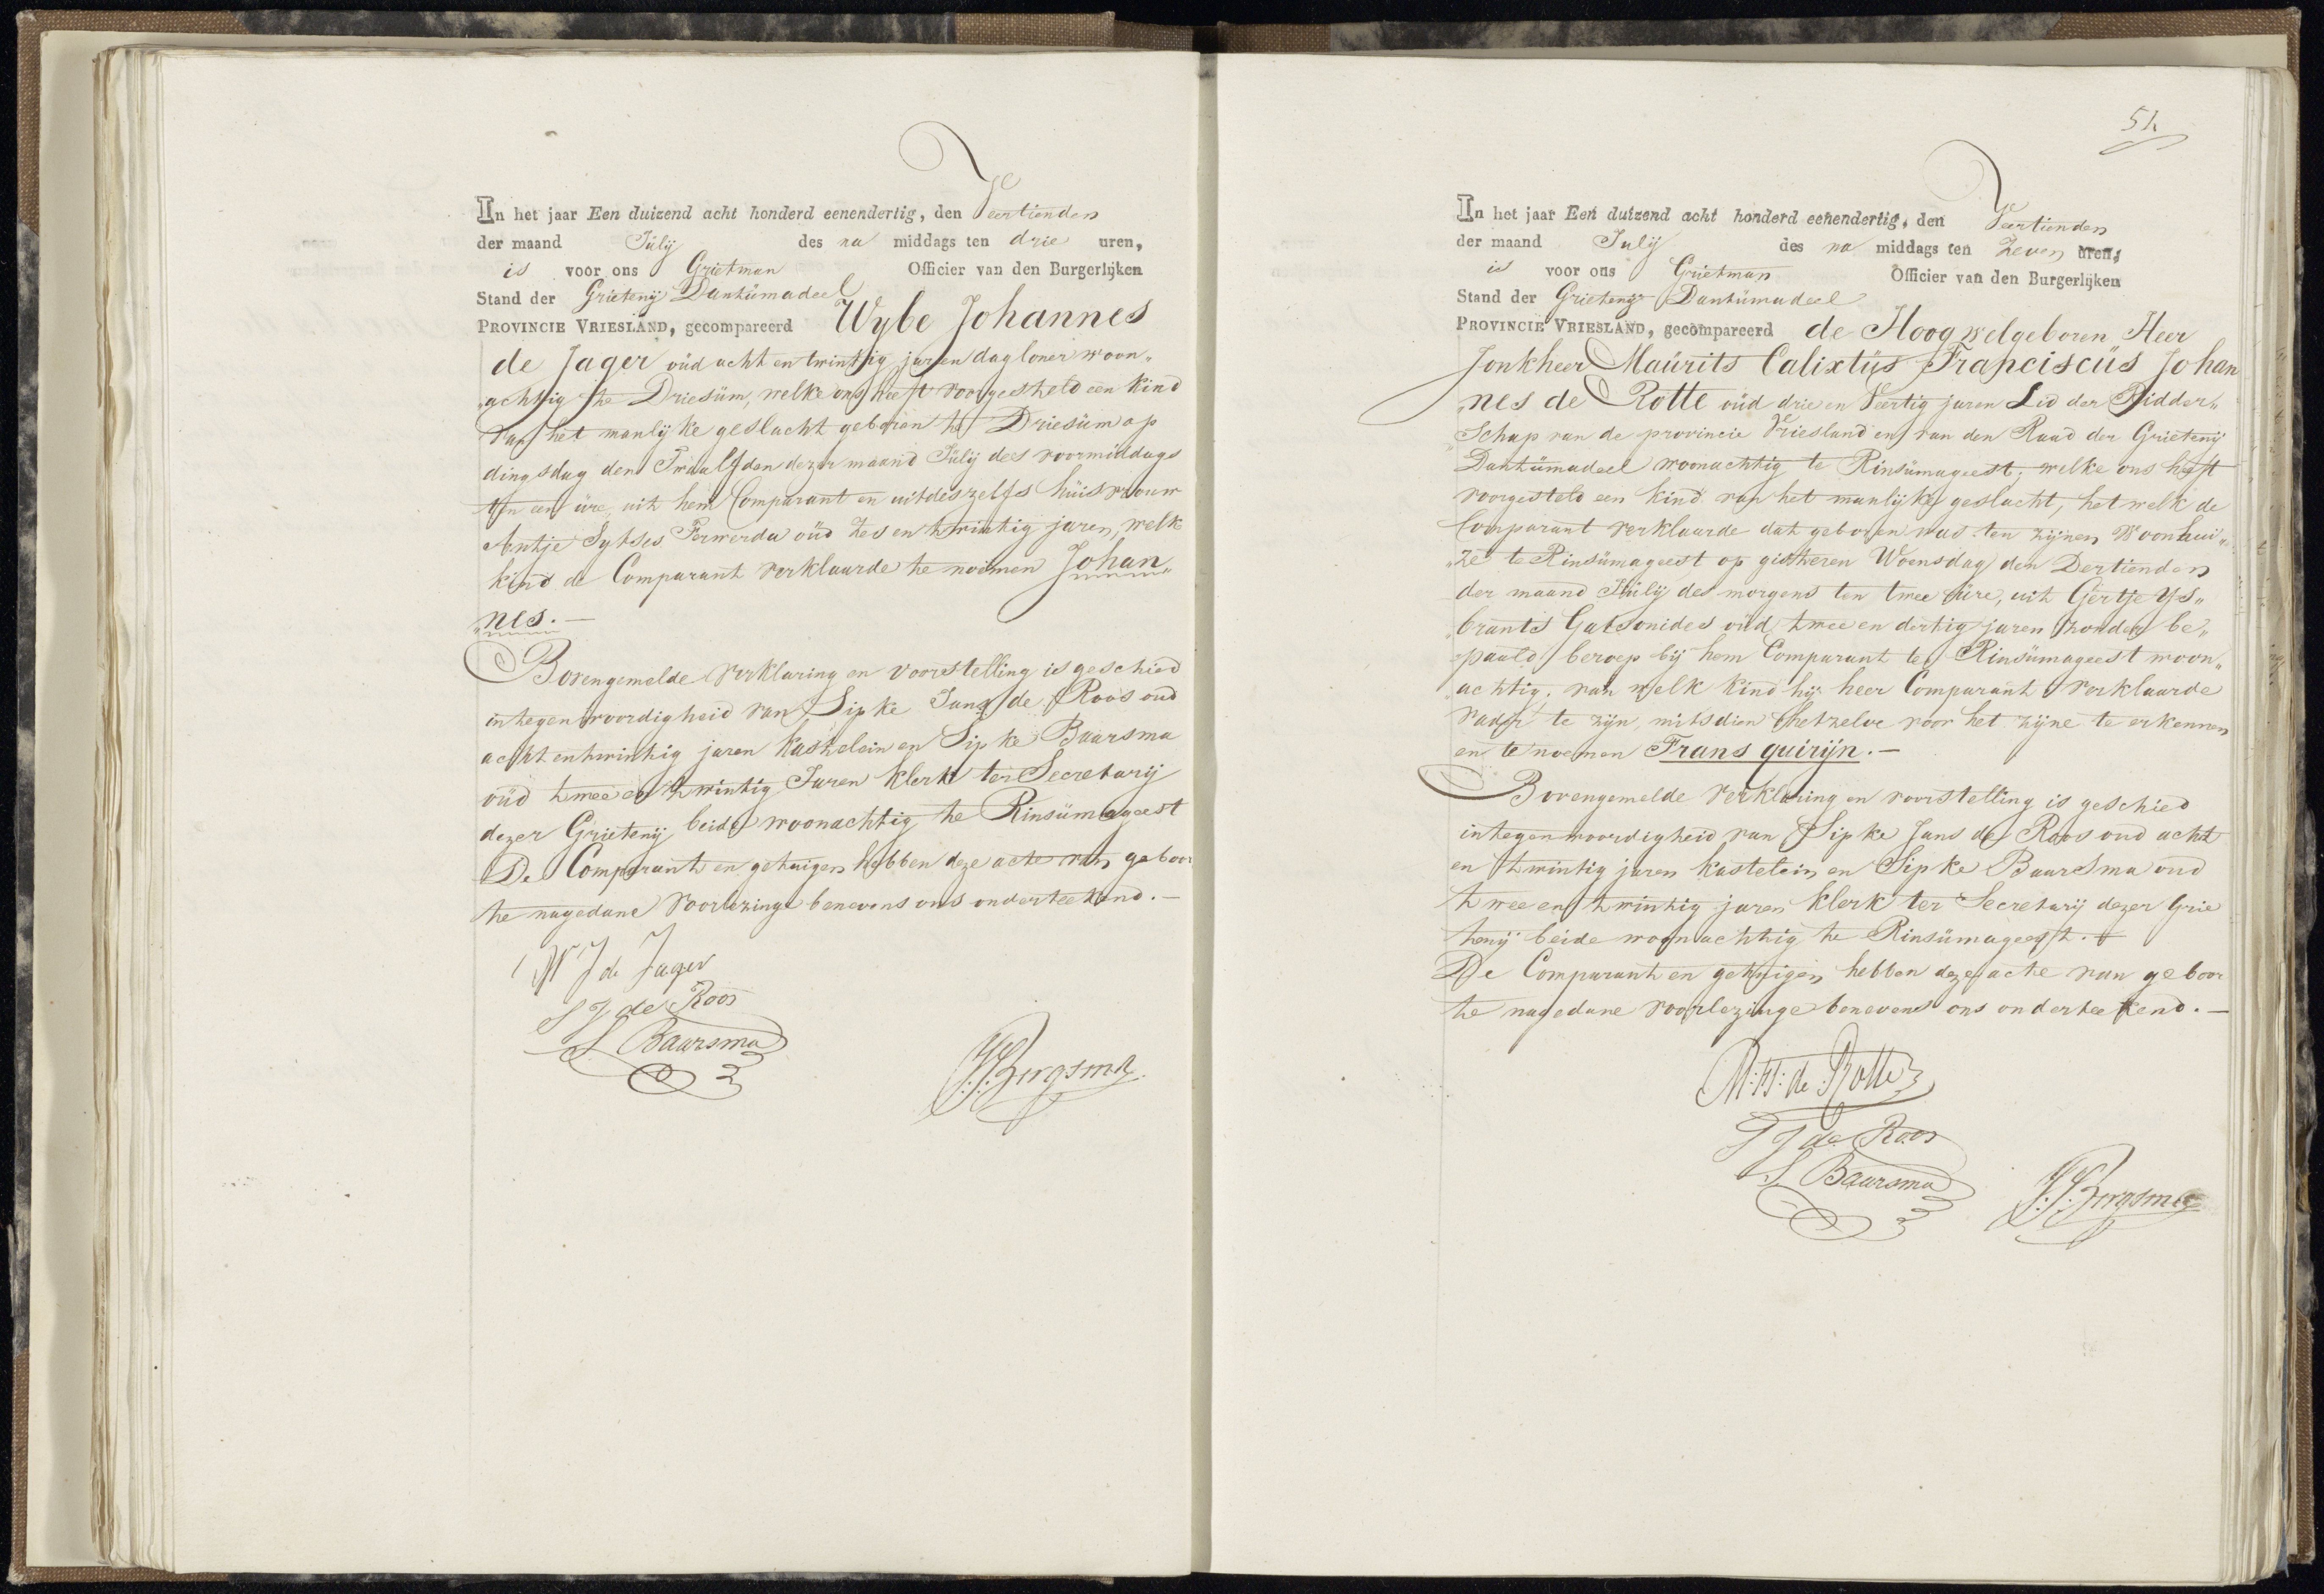 In het jaar Een duizend acht honderd eenendertig, den Veertienden
der maand Julij des na middags ten drie uren,
is voor ons Grietman Officier van den Burgerlijken
Stand der Grietenij Dantümadeel
PROVINCIE VRIESLAND, gecompareerd Wybe Johannes
de Jager oüd acht en twintig jaren dagloner woon„
„achtig te Driesüm, welke ons heeft voorgesteld een kind
van het manlijke geslacht geboren te Driesüm op
dingsdag den Twaalfden dezer maand Jülij des voormiddags
ten een üre, uit hem Comparant en uit deszelfs huisvrouw
Antje Sytses Ferwerda oüd Zes en twintig jaren, welk
kind de Comparant verklaarde te noemen Johan„
„nes.—
Bovengemelde verklaring en voorstelling is geschied
in tegenwoordigheid van Sipke Jans de Roos oud
acht en twintig jaren kastelein en Sipke Baarsma
oüd twee en twintig Jaren klerk ter Secretarij
dezer Grietenij beide woonachtig te Rinsümageest
De Comparant en getuigen hebben deze acte van geboor
te nagedane voorlezinge benevens ons onderteekend.—
W J de Jager
S J de Roos
S Baarsma
Bergsma
51
In het jaar Een duizend acht honderd eenendertig, den Veertienden
der maand Julij des na middags ten Zeven uren,
is voor ons Grietman Officier van den Burgerlijken
Stand der Grietenij Dantümadeel
PROVINCIE VRIESLAND, gecompareerd de Hoog welgeboren Heer
Jonkheer Maürits Calixtüs Franciscüs Johan
„nes de Rotte oüd drie en Veertig jaren Lid der Ridder„
„Schap van de provincie Vriesland en van den Raad der Grietenij
Dantümadeel woonachtig te Rinsümageest; welke ons heeft
voorgesteld een kind van het manlijke geslacht, het welk de
Comparant verklaarde dat geboren was ten zijnen Woonhui„
„ze te Rinsümageest op gisteren Woensdag den Dertienden
der maand Jülij des morgens ten twee üre, uit Gertje Ys„
„brants Gatsonides oüd twee en dertig jaren zonder be„
„paald beroep bij hem Comparant te Rinsümageest woon„
„achtig. van welk kind hij heer Comparant verklaarde
vader te zijn, mitsdien hetzelve voor het zijne te erkennen
en te noemen Frans quirijn.—
Bovengemelde verklaring en voorstelling is geschied
in tegenwoordigheid van Sipke Jans de Roos oud acht
en twintig jaren kastelein en Sipke Baarsma oud
twee en twintig jaren klerk ter Secretarij dezer Grie
tenij beide woonachtig te Rinsümageest.
De Comparant en getuigen hebben deze acte van geboor
te nagedane voorlezinge benevens ons onderteekend.—
de Rotte
S J de Roos
S Baarsma
Bergsma